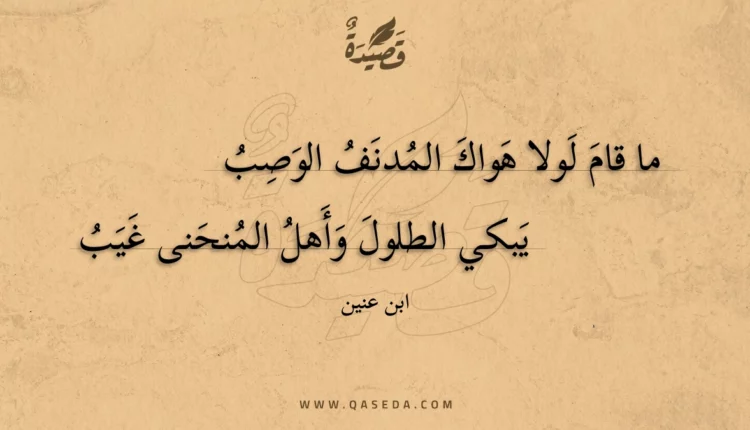 قَصِيْدَةٌ
ما قامَ لَولا هَواكَ المُدنَفُ الوَصِبُ
يَبكي الطلولَ وَأَهلُ المُنحَنى غَيَبُ
ابن عنين
WWW.QASEDA.COM